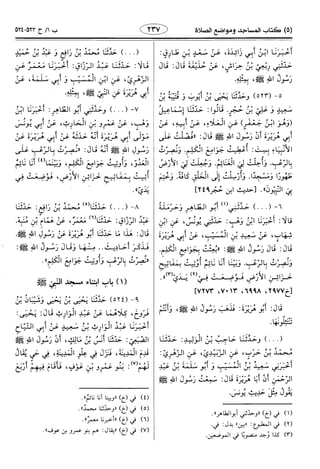 (٥) كتاب المساجد ومواضع الصلاة
٢٣٧
ب ١/ ح ٥٢٣-٥٢٤
أَخْبَرَنَا ابْنُ أَبِي زَائِدَةَ، عَنْ سَعْدِ بْنِ طَارِقٍ:
حَدَّثَنِي رِبْعِيُّ بْنُ حِرَاشٍ، عَنْ حُذَيْفَةَ قَالَ: قَالَ
رَسُولُ اللهِ ﷺ، بِمِثْلِهِ.
٥- (٥٢٣) وَحَدَّثَنَا يَحْيَى بْنُ أَيُّوبَ وَ قُتَيْبَةُ بْنُ
سَعِيدٍ وَ عَلِيُّ بْنُ حُجْرٍ. قَالُوا: حَدَّثَنَا إِسْمَاعِيلُ
(وَهُوَ ابْنُ جَعْفَرٍ) عَنِ الْعَلَاءِ، عَنْ أَبِيهِ، عَنْ
أَبِي هُرَيْرَةَ أَنَّ رَسُولَ اللهِ ﷺ قَالَ: «فُضِّلْتُ عَلَى
الْأَنْبِيَاءِ بِسِتٍّ: أُعْطِيتُ جَوَامِعَ الْكَلِمِ. وَنُصِرْتُ
بِالرُّعْبِ. وَأُحِلَّتْ لِيَ الْغَنَائِمُ. وَجُعِلَتْ لِيَ الْأَرْضُ
طَهُورًا وَمَسْجِدًا. وَأُرْسِلْتُ إِلَى الْخَلْقِ كَافَّةً. وَخُتِمَ
بِيَ النَّبِيُّونَ».
٦- (...) حَدَّثَنِي(١) أَبُو الطَّاهِرِ وَحَرْمَلَةُ
قَالَا: أَخْبَرَنَا ابْنُ وَهْبٍ: حَدَّثَنِي يُونُسُ، عَنِ ابْنِ
شِهَابٍ، عَنْ سَعِيدِ بْنِ الْمُسَيَّبِ، عَنْ أَبِي هُرَيْرَةَ
قَالَ: قَالَ رَسُولُ اللهِ ﷺ: «بُعِثْتُ بِجَوَامِعِ الْكَلِمِ.
وَنُصِرْتُ بِالرُّعْبِ. وَبَيْنَا أَنَا نَائِمٌ أُوتِيتُ بِمَفَاتِيحِ
خَزَائِنِ الْأَرْضِ فَوُضِعَتْ فِي(٢) يَدَيَّ»(٣).
[ح٢٩٧٧، ٦٩٩٨، ٧٠١٣، ٧٢٧٣]
قَالَ: أَبُو هُرَيْرَةَ: فَذَهَبَ رَسُولُ اللهِ ﷺ، وَأَنْتُمْ
تَنْتَثِلُونَهَا.
(...) وَحَدَّثَنَا حَاجِبُ بْنُ الْوَلِيدِ: حَدَّثَنَا
مُحَمَّدُ بْنُ حَرْبٍ، عَنِ الزُّبَيْدِيِّ، عَنِ الزُّهْرِيِّ:
أَخْبَرَنِي سَعِيدُ بْنُ الْمُسَيَّبِ وَ أَبُو سَلَمَةَ بْنُ عَبْدِ
الرَّحْمٰنِ أَنَّ أَبَا هُرَيْرَةَ قَالَ: سَمِعْتُ رَسُولَ اللهِ ﷺ
يَقُولُ مِثْلَ حَدِيثِ يُونُسَ.
(١) في (خ) «وحدثني أبو الطاهر».
(٢) في المطبوع: «بين» بدل: في.
(٣) كذا وُجد منصوبًا في الموضعين.
(...) حَدَّثَنَا مُحَمَّدُ بْنُ رَافِعٍ وَ عَبْدُ بْنُ حُمَيْدٍ
قَالَا: حَدَّثَنَا عَبْدُ الرَّزَّاقِ: أَخْبَرَنَا مَعْمَرٌ عَنِ
الزُّهْرِيِّ، عَنِ ابْنِ الْمُسَيَّبِ وَ أَبِي سَلَمَةَ، عَنْ
أَبِي هُرَيْرَةَ عَنِ النَّبِيِّ ﷺ، بِمِثْلِهِ.
٧- (...) وَحَدَّثَنِي أَبُو الطَّاهِرِ: أَخْبَرَنَا ابْنُ
وَهْبٍ، عَنْ عَمْرِو بْنِ الْحَارِثِ، عَنْ أَبِي يُونُسَ
مَوْلَى أَبِي هُرَيْرَةَ أَنَّهُ حَدَّثَهُ عَنْ أَبِي هُرَيْرَةَ عَنْ
رَسُولِ اللهِ ﷺ أَنَّهُ قَالَ: «نُصِرْتُ بِالرُّعْبِ عَلَى
الْعَدُوِّ. وَأُوتِيتُ جَوَامِعَ الْكَلِمِ. وَبَيْنَمَا(٤) أَنَا نَائِمٌ
أُتِيتُ بِمَفَاتِيحِ خَزَائِنِ الْأَرْضِ، فَوُضِعَتْ فِي
يَدَيَّ».
٨- (...) حَدَّثَنَا(٥) مُحَمَّدُ بْنُ رَافِعٍ: حَدَّثَنَا
عَبْدُ الرَّزَّاقِ: حَدَّثَنَا(٦) مَعْمَرٌ، عَنْ هَمَّامِ بْنِ مُنَبِّهٍ.
قَالَ: هَذَا مَا حَدَّثَنَا أَبُو هُرَيْرَةَ عَنْ رَسُولِ اللهِ ﷺ
فَذَكَرَ أَحَادِيثَ. مِنْهَا: وَقَالَ رَسُولُ اللهِ ﷺ:
«نُصِرْتُ بِالرُّعْبِ وَأُوتِيتُ جَوَامِعَ الْكَلِمِ».
(١) باب ابتناء مسجد النبي ﷺ
٩- (٥٢٤) حَدَّثَنَا يَحْيَى بْنُ يَحْيَى وَ شَيْبَانُ بْنُ
فَرُّوخَ، كِلَاهُمَا عَنْ عَبْدِ الْوَارِثِ قَالَ يَحْيَى:
أَخْبَرَنَا عَبْدُ الْوَارِثِ بْنُ سَعِيدٍ عَنْ أَبِي التَّيَّاحِ
الضُّبَعِيِّ: حَدَّثَنَا أَنَسُ بْنُ مَالِكٍ، أَنَّ رَسُولَ اللهِ ﷺ
قَدِمَ الْمَدِينَةَ، فَنَزَلَ فِي عُلْوِ الْمَدِينَةِ، فِي حَيٍّ يُقَالُ
لَهُمْ(٧): بَنُو عَمْرِو بْنِ عَوْفٍ، فَأَقَامَ فِيهِمْ أَرْبَعَ
(٤) في (خ) «وبينا أنا نائم».
(٥) في (خ) «وحدثنا محمد».
(٦) في (خ) «أخبرنا معمر».
(٧) في (خ) «يقال: هم بنو عمرو بن عوف».